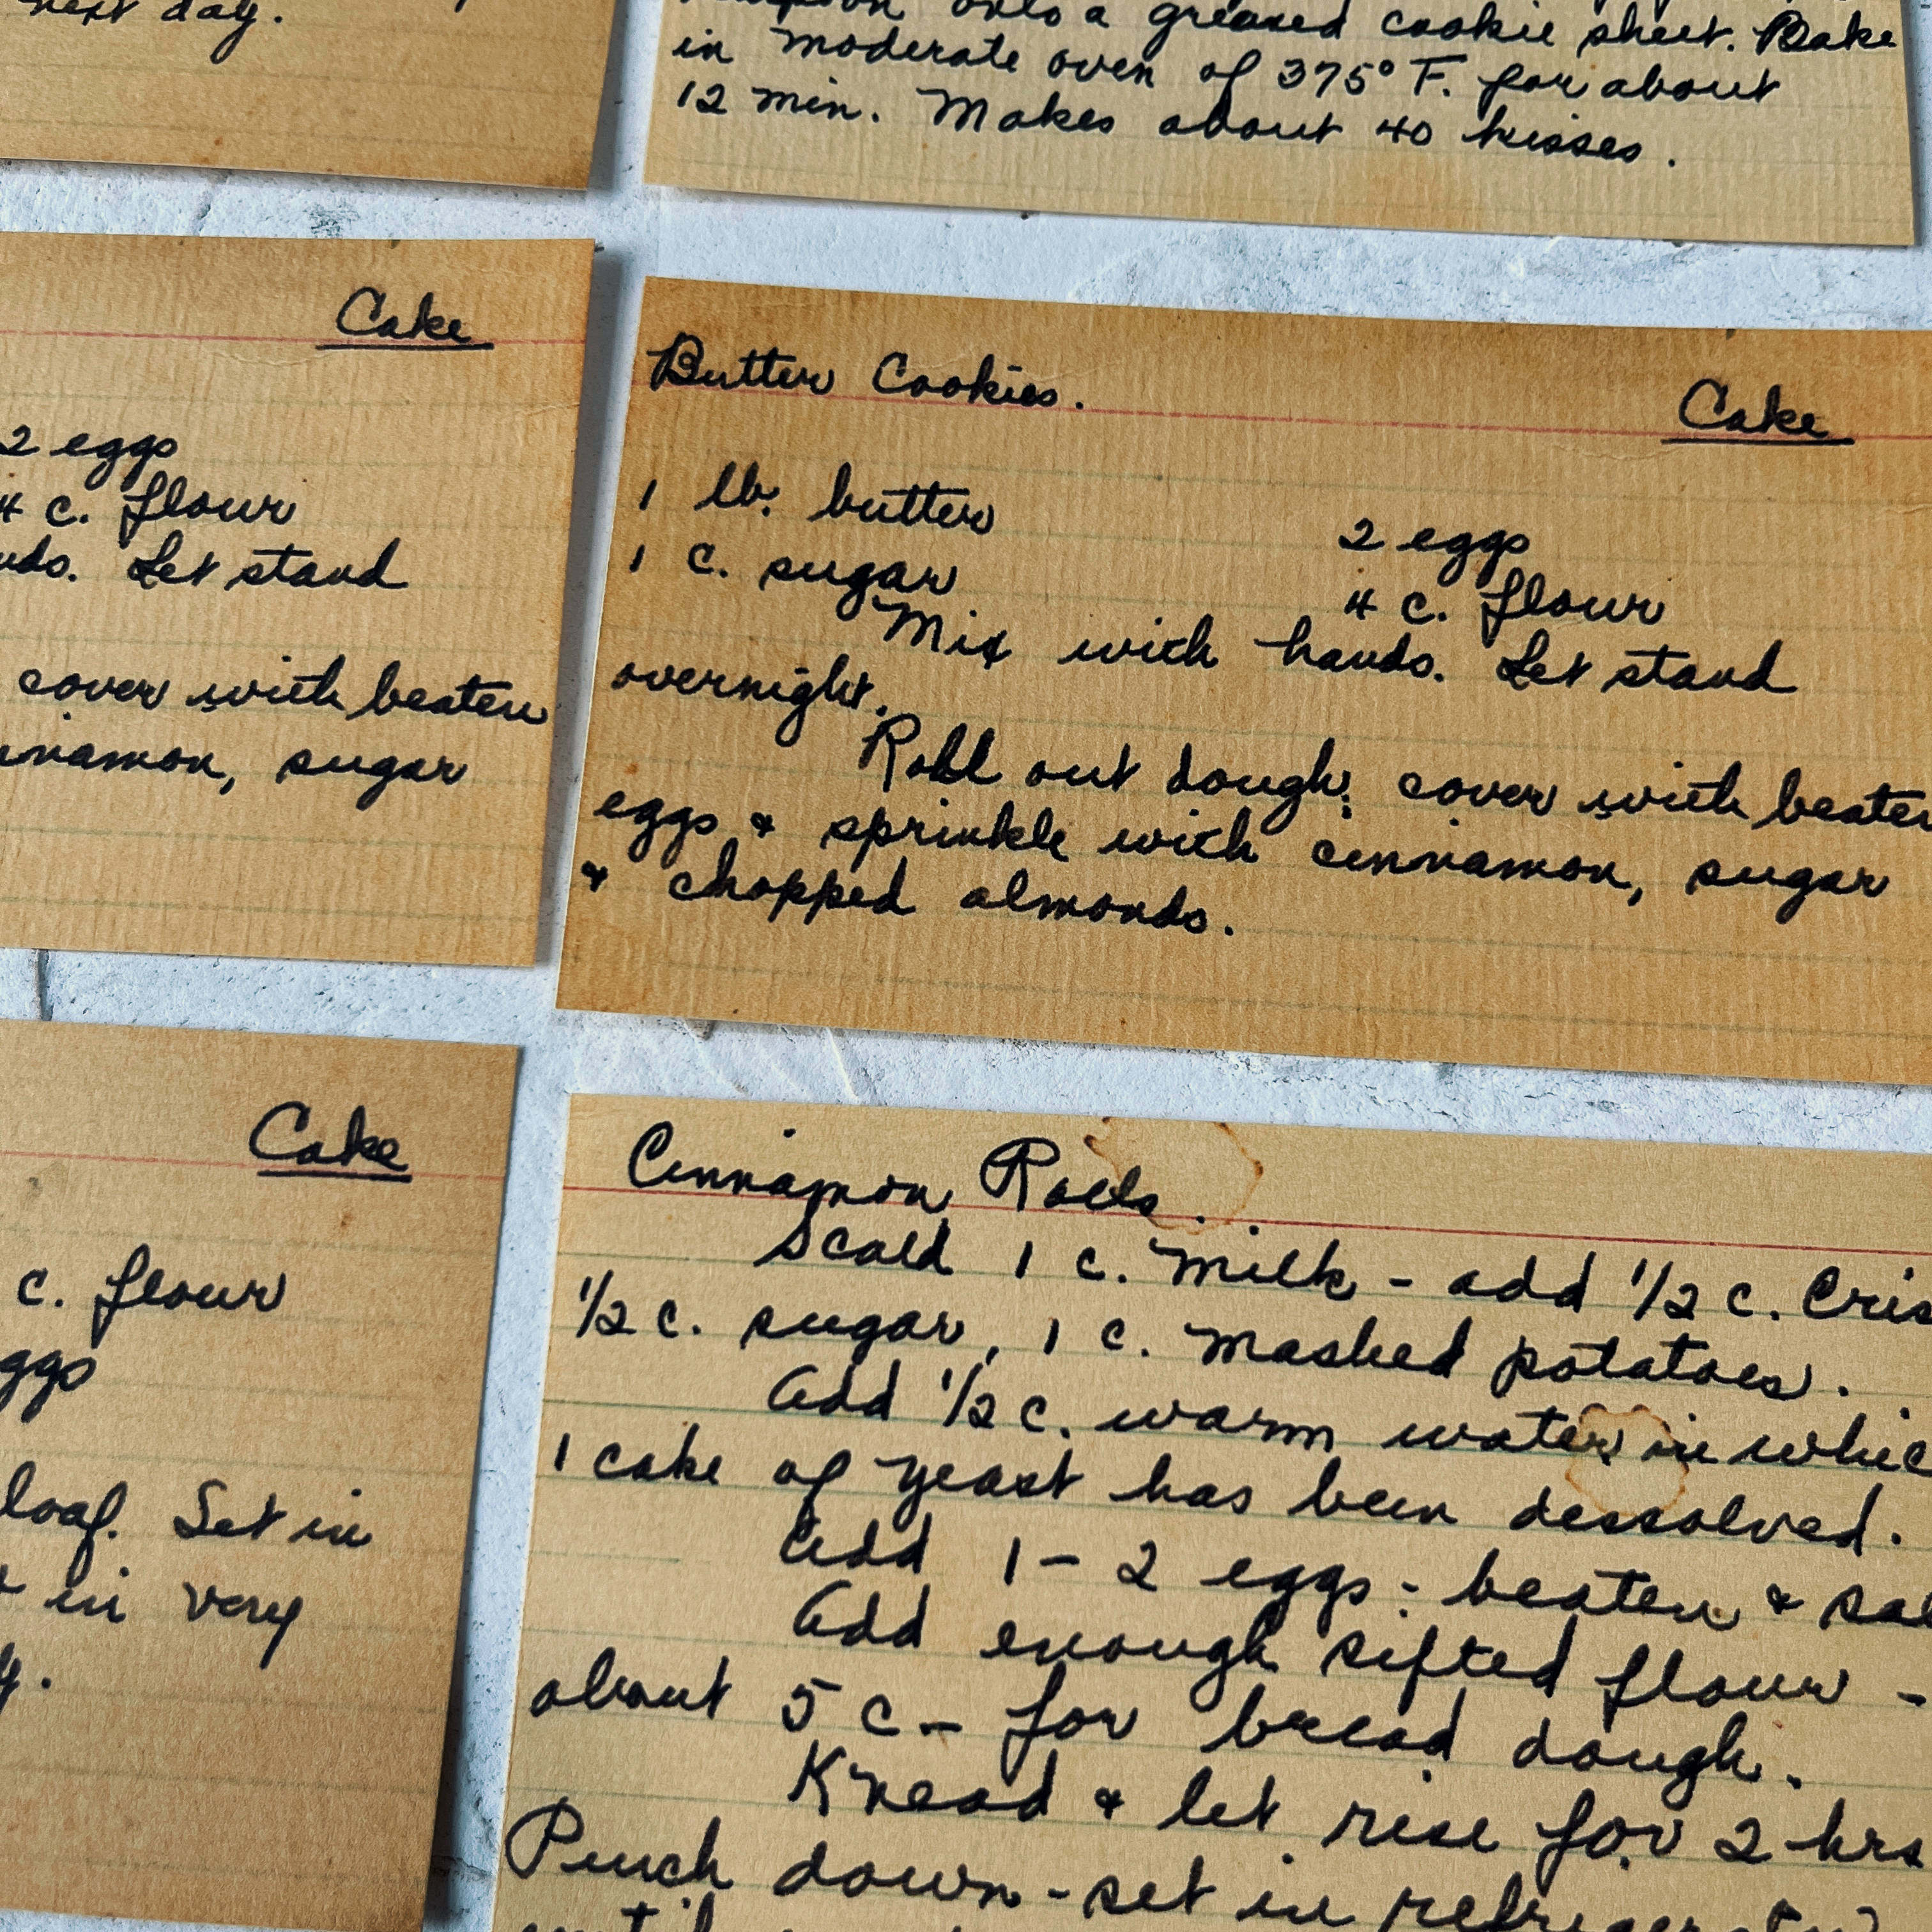 next day.
onto a greased cookie sheet. Bake
in moderate oven of 375° F. for about
12 min. Makes about 40 kisses.
Cake
2 eggs
4 c. flour
Let stand
cover with beaten
sugar
Butter Cookies.
Cake
1 lb. butter
2 eggs
1 c. sugar
4 c. flour
Mix with hands. Let stand
overnight.
Roll out dough; cover with beaten
eggs & sprinkle with cinnamon, sugar
& chopped almonds.
Cake
c. flour
loaf. Set in
in very
Cinnamon Rolls.
Scald 1 c. milk - add 1/2 c.
1/2 c. sugar, 1 c. mashed potatoes.
Add 1/2 c. warm water in
1 cake of yeast has been dessolved.
Add 1-2 eggs - beaten &
Add enough sifted flour -
about 5 c - for bread dough.
Knead & let rise for 2 hrs
Punch down - set in